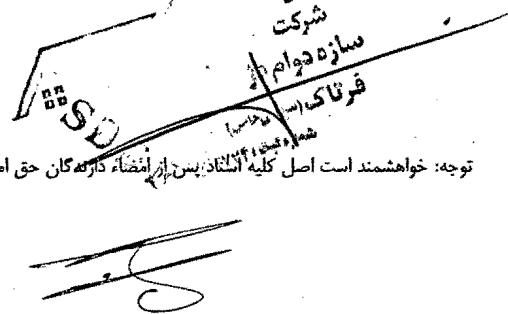 شرکت
سازه دوام
فرتاک (سهامی خاص)
شماره ثبت:
توجه: خواهشمند است اصل کلیه اسناد پس از امضاء دارندگان حق ام